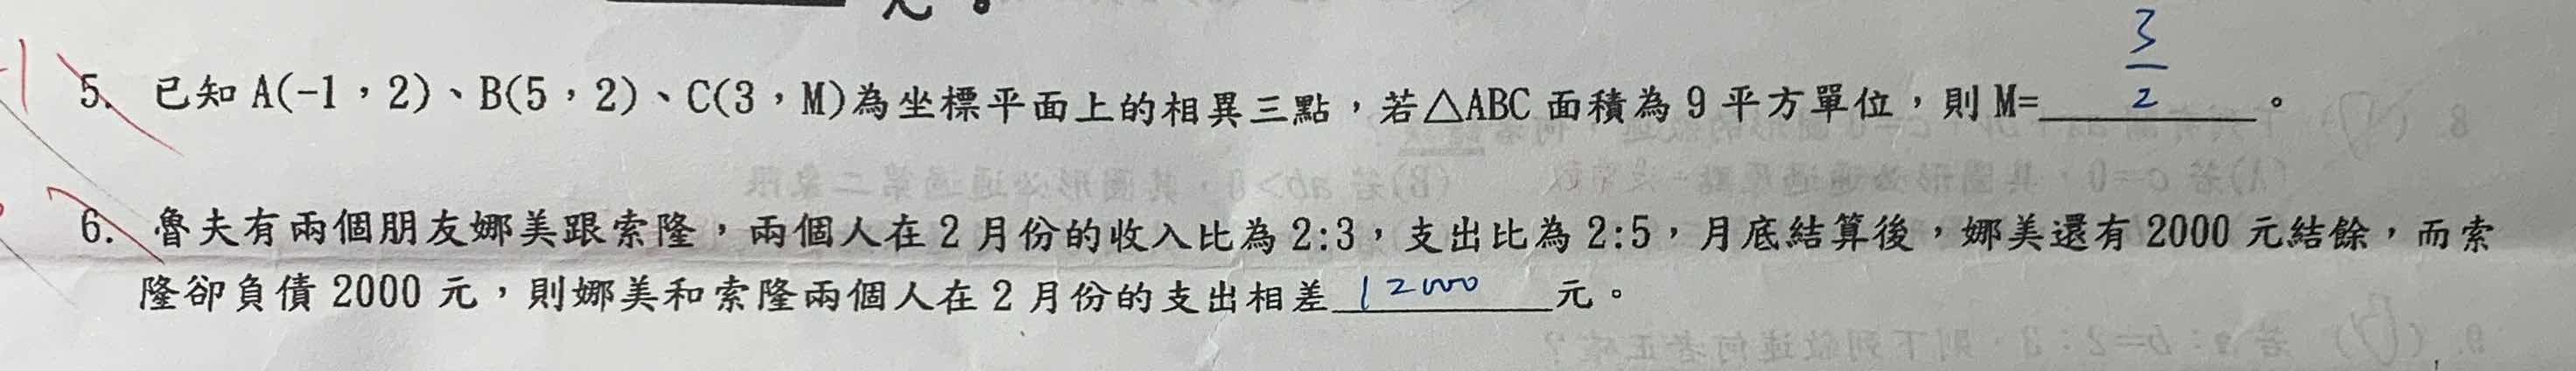 元。
5. 已知 A(-1，2)、B(5，2)、C(3，M)為坐標平面上的相異三點，若△ABC 面積為 9 平方單位，則 M= 3/2 。
6. 魯夫有兩個朋友娜美跟索隆，兩個人在 2 月份的收入比為 2:3，支出比為 2:5，月底結算後，娜美還有 2000 元結餘，而索
隆卻負債 2000 元，則娜美和索隆兩個人在 2 月份的支出相差 12000 元。